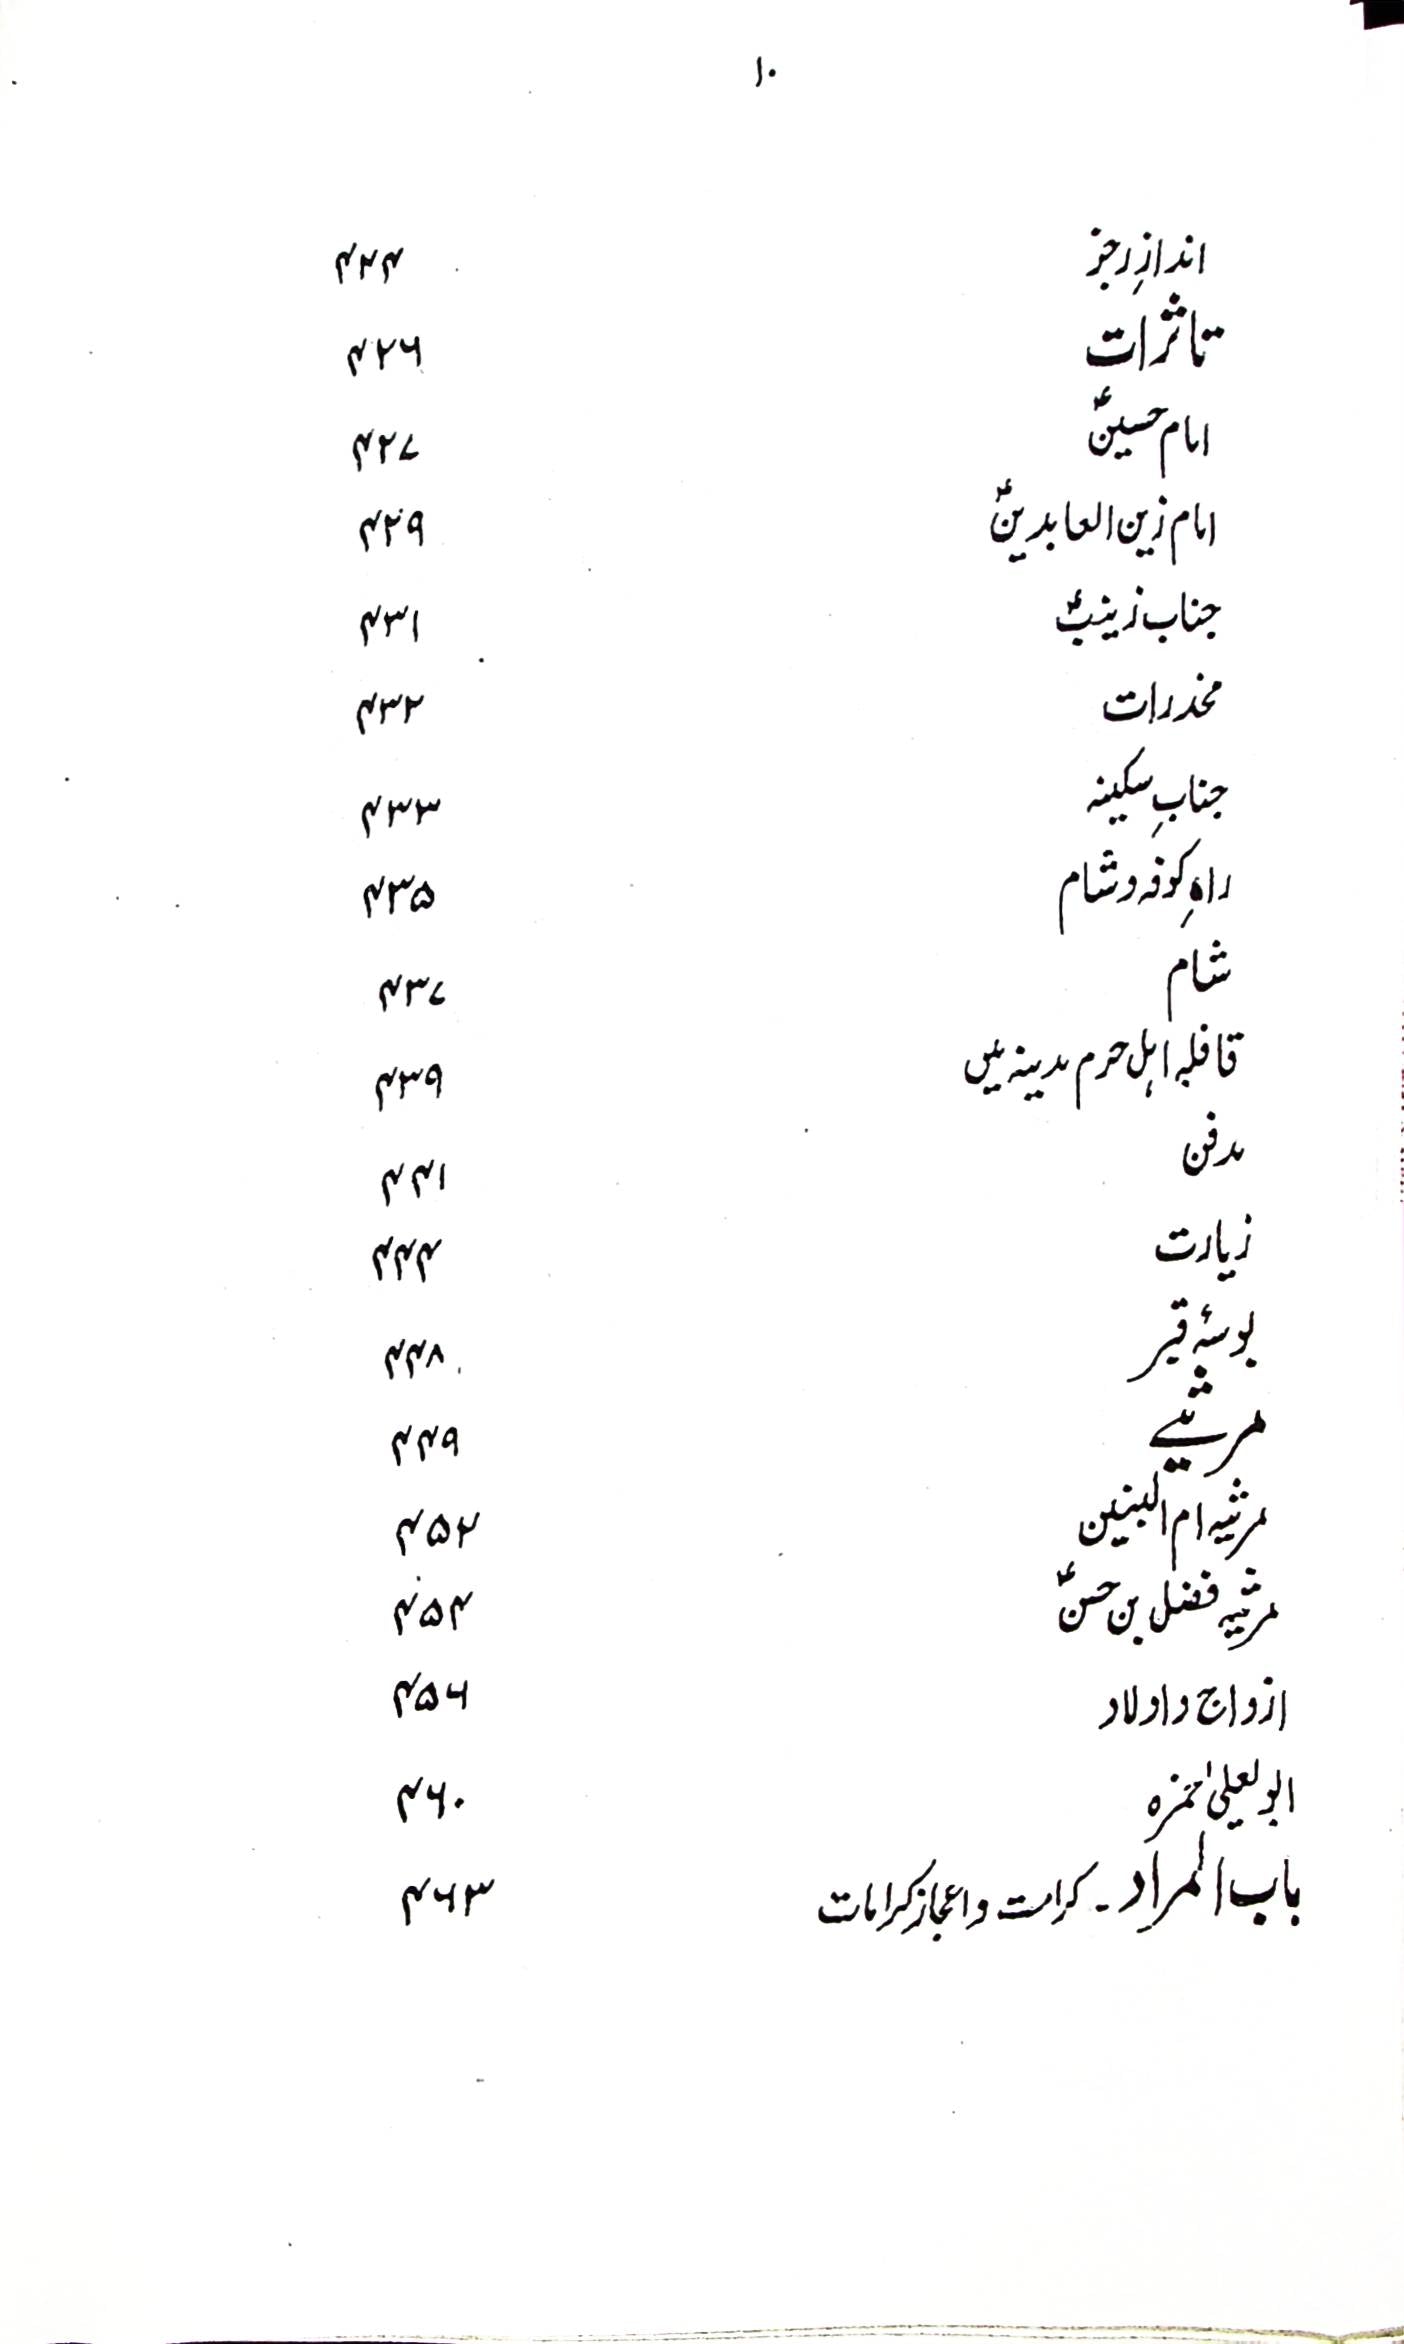 ۱۰
اندازِ رجز ۴۲۴
تاثرات ۴۲۶
امام حسینؑ ۴۲۷
امام زین العابدینؑ ۴۲۹
جناب زینبؑ ۴۳۱
مخدرات ۴۳۲
جنابِ سکینہ ۴۳۳
راہِ کوفہ و شام ۴۳۵
شام ۴۳۷
قافلہ اہل حرم مدینہ میں ۴۳۹
مدفن ۴۴۱
زیارت ۴۴۴
بوسۂ قبر ۴۴۸
مرثیے ۴۴۹
مرثیہ ام البنین ۴۵۲
مرثیہ فضل بن حسنؑ ۴۵۴
ازواج و اولاد ۴۵۶
ابو یعلیٰ حمزہ ۴۶۰
باب المراد۔ کرامت و اعجاز کرامات ۴۶۳